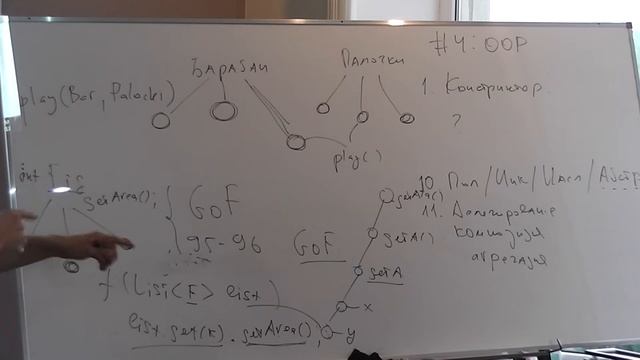 #4: OOP
Барабан
Палочки
play(Bar, Palocki)
1. Конструктор
?
play()
int
getArea();
GoF
95-96
GoF
getA()
getA
x
y
10 Пол/Инк/Насл/Абстр
11. Делегирование
композиция
агрегация
f(List<F> list)
list.get(k).getArea();